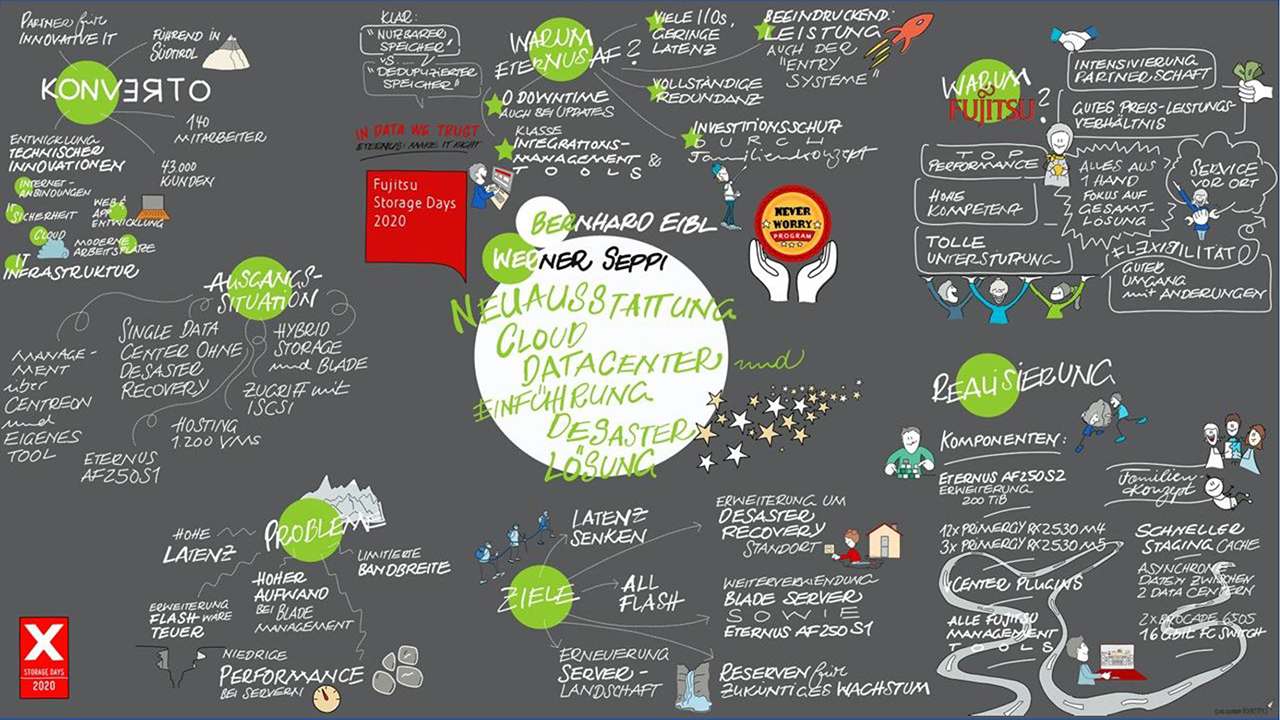 PARTNER für
INNOVATIVE IT
FÜHREND IN
SÜDTIROL
KONVERTO
140
MITARBEITER
43.000
KUNDEN
ENTWICKLUNG
TECHNISCHER
INNOVATIONEN
INTERNET-
ANBINDUNGEN
IT
SICHERHEIT
WEB &
APP
ENTWICKLUNG
CLOUD
MODERNE
ARBEITSPLÄTZE
IT
INFRASTRUKTUR
KLAR:
"NUTZBARER
SPEICHER"
VS
"DEDUPLIZIERTER
SPEICHER"
WARUM
ETERNUS AF?
VIELE I/Os,
GERINGE
LATENZ
BEEINDRUCKEND:
LEISTUNG
AUCH DER
"ENTRY
SYSTEME"
VOLLSTÄNDIGE
REDUNDANZ
0 DOWNTIME
AUCH BEI UPDATES
KLASSE
INTEGRATIONS-
MANAGEMENT &
TOOLS
INVESTITIONSSCHUTZ
DURCH
Familienkonzept
IN DATA WE TRUST
ETERNUS: MAKE IT RIGHT
Fujitsu
Storage Days
2020
NEVER
WORRY
PROGRAM
BERNHARD EIBL
WERNER SEPPI
NEUAUSSTATTUNG
CLOUD
DATACENTER und
EINFÜHRUNG
DESASTER
LÖSUNG
WARUM
FUJITSU?
INTENSIVIERUNG
PARTNERSCHAFT
GUTES PREIS-LEISTUNGS-
VERHÄLTNIS
TOP
PERFORMANCE
HOHE
KOMPETENZ
TOLLE
UNTERSTÜTZUNG
ALLES AUS
1 HAND
FOKUS AUF
GESAMT-
LÖSUNG
SERVICE
VOR ORT
FLEXIBILITÄT
GUTER
UMGANG
mit ÄNDERUNGEN
AUSGANGS-
SITUATION
MANAGE-
MENT
über
CENTREON
und
EIGENES
TOOL
SINGLE DATA
CENTER OHNE
DESASTER
RECOVERY
HYBRID
STORAGE
und BLADE
ZUGRIFF mit
ISCSI
HOSTING
1.200 VMS
ETERNUS
AF250S1
PROBLEM
HOHE
LATENZ
LIMITIERTE
BANDBREITE
HOHER
AUFWAND
BEI BLADE
MANAGEMENT
ERWEITERUNG
FLASH WÄRE
TEUER
NIEDRIGE
PERFORMANCE
BEI SERVERN
X
STORAGE DAYS
2020
ZIELE
LATENZ
SENKEN
ALL
FLASH
ERNEUERUNG
SERVER-
LANDSCHAFT
ERWEITERUNG UM
DESASTER
RECOVERY
STANDORT
WEITERVERWENDUNG
BLADE SERVER
SOWIE
ETERNUS AF250 S1
RESERVEN für
ZUKÜNFTIGES WACHSTUM
REALISIERUNG
KOMPONENTEN:
ETERNUS AF250S2
ERWEITERUNG
200 TiB
12x PRIMERGY RX2530 M4
3x PRIMERGY RX2530 M5
VCENTER PLUGINS
ALLE FUJITSU
MANAGEMENT
TOOLS
Familien-
konzept
SCHNELLER
STAGING CACHE
ASYNCHRONE
DATEN ZWISCHEN
2 DATA CENTERN
2x BROCADE 6505
FC SWITCH